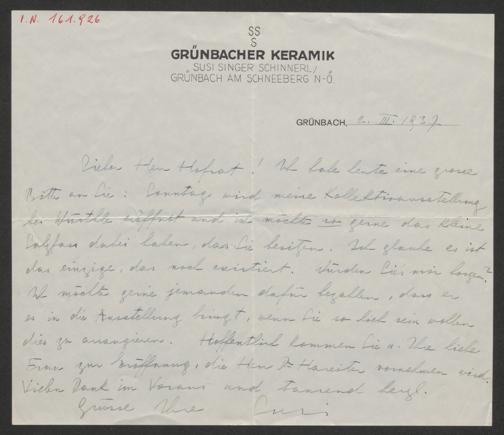 I.N. 161.926
SS
S
GRÜNBACHER KERAMIK
SUSI SINGER SCHINNERL/
GRÜNBACH AM SCHNEEBERG N-Ö.
GRÜNBACH, 2. III. 1937
Lieber Herr Hofrat! Ich habe heute eine grosse
Bitte an Sie: Sonntag wird meine Kollektivausstellung
bei Würthle eröffnet und ich möchte so gerne das kleine
Salzfass dabei haben, das Sie besitzen. Ich glaube es ist
das einzige, das noch existiert. Würden Sie's mir borgen?
Ich möchte gerne jemanden dafür bezahlen, dass er
es in die Ausstellung bringt, wenn Sie so lieb sein wollen
dies zu arrangieren. Hoffentlich kommen Sie u. Ihre liebe
Frau zur Eröffnung, die Herr Dr Hareiter vornehmen wird.
Vielen Dank im Voraus und tausend herzl.
Grüsse Ihre Susi